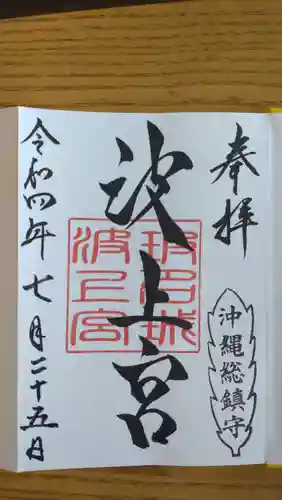 奉拝
沖縄総鎮守
波上宮
令和四年七月二十五日